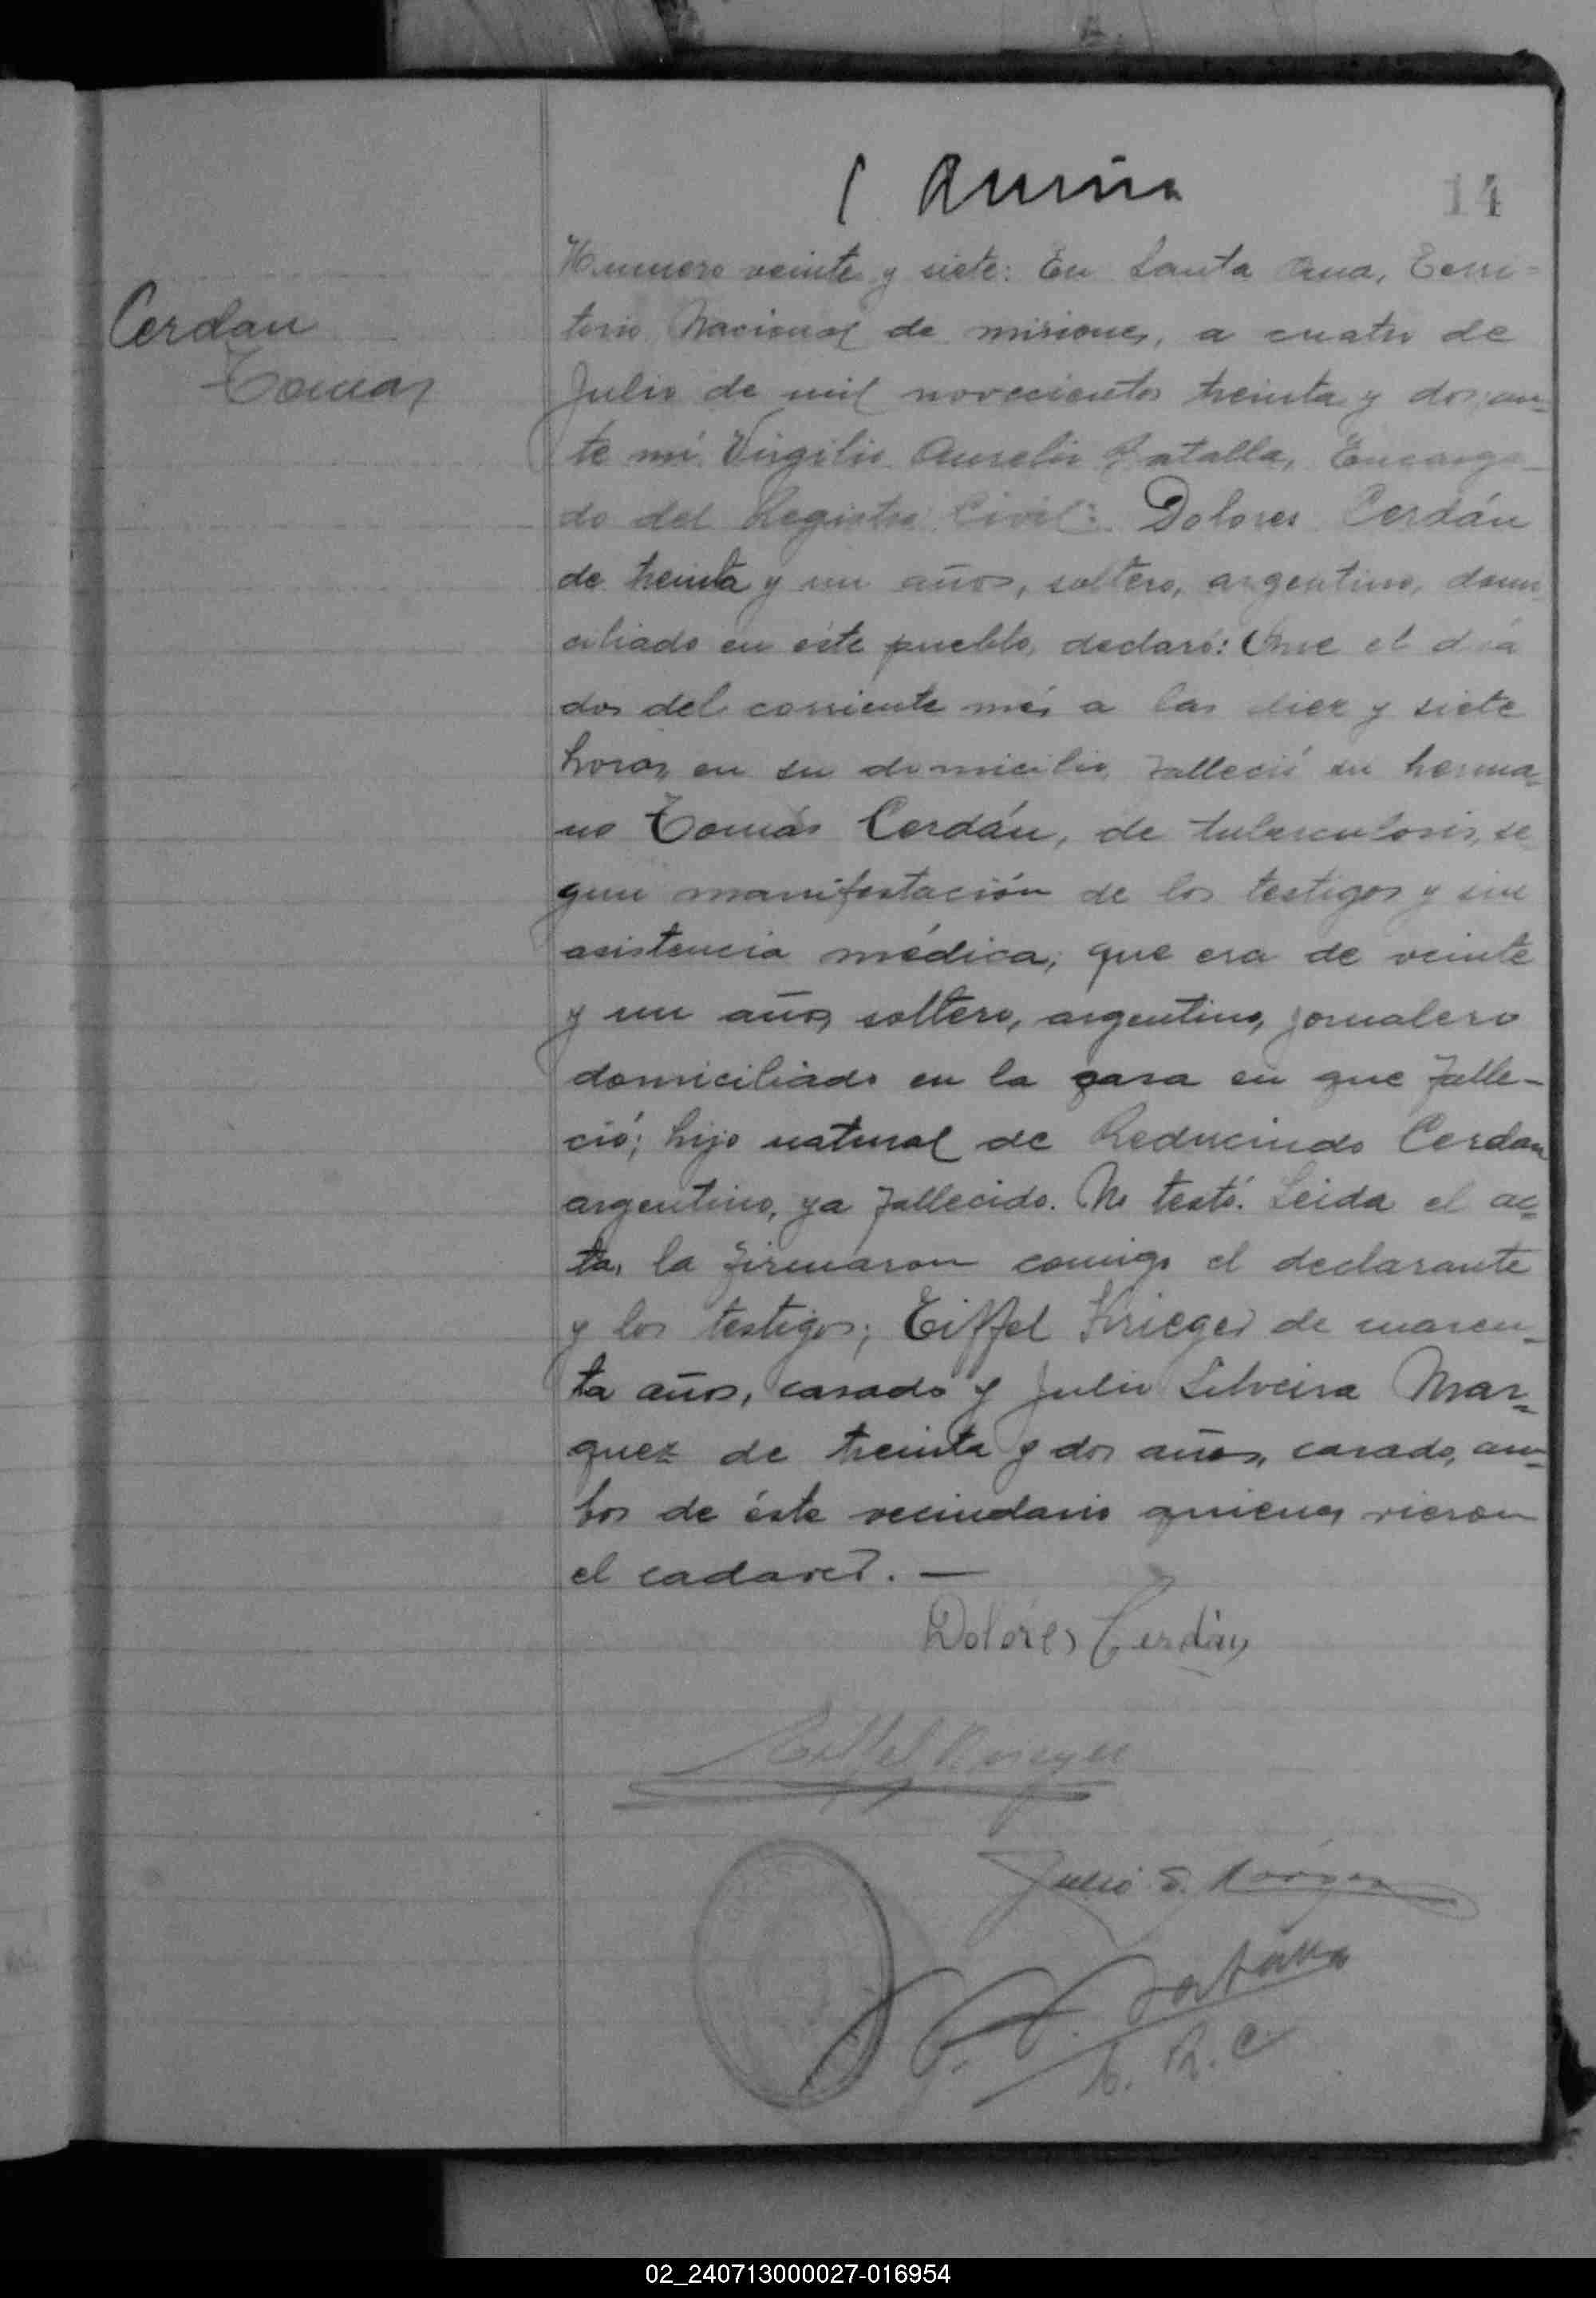 14
Cerdan
Tomas
Numero veinte y siete: En Santa Ana, Terri=
torio Nacional de misiones, a cuatro de
Julio de mil novecientos treinta y dos, an=
te mí Virgilio Aurelio Batalla, Encarga-
do del Registro Civil: Dolores Cerdán
de treinta y un años, soltero, argentino, domi
ciliado en éste pueblo, declaró: Que el día
dos del corriente més a las diez y siete
horas en su domicilio, falleció su herma=
no Tomás Cerdán, de tuberculosis, se
gun manifestación de los testigos y sin
asistencia médica; que era de veinte
y un años, soltero, argentino, jornalero
domiciliado en la casa en que falle-
ció; hijo natural de Reducindo Cerdan
argentino, ya fallecido. No testó. Leida el ac=
ta, la firmaron comigo el declarante
y los testigos; Eiffel Krieger de cuaren-
ta años, casado y Julio Silveira Mar=
quez de treinta y dos años, casado, am=
bos de éste vecindario quienes vieron
el cadaver. —
Dolores Cerdán
Eiffel Krieger
Julio S. Marquez
V. A. Batalla
E. R. C
02_240713000027-016954